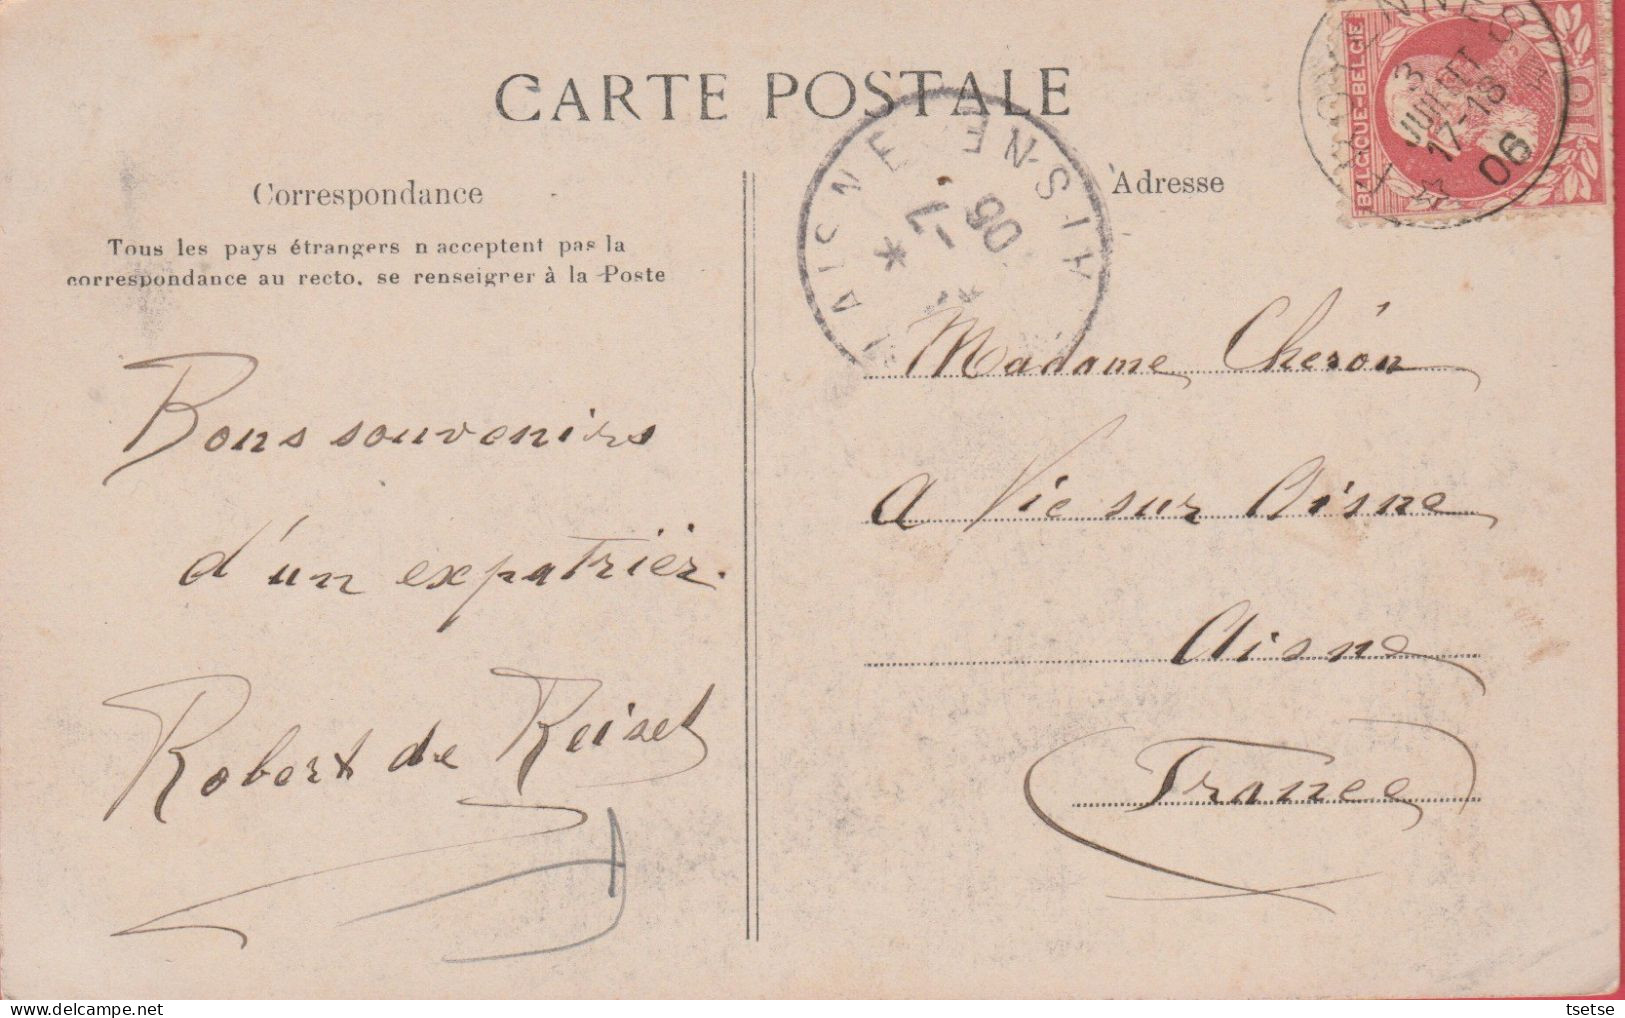 CARTE POSTALE
Correspondance
Tous les pays étrangers n acceptent pas la
correspondance au recto, se renseigner à la Poste
Adresse
BELGIQUE-BELGIE
10
3
JUILLET
17-18
06
AISNE
AISNE
7-
06
Bons souvenirs
d'un expatriér.
Robert de Reiset
Madame Cheron
A Vic sur Aisne
Aisne
(France)
tsetse